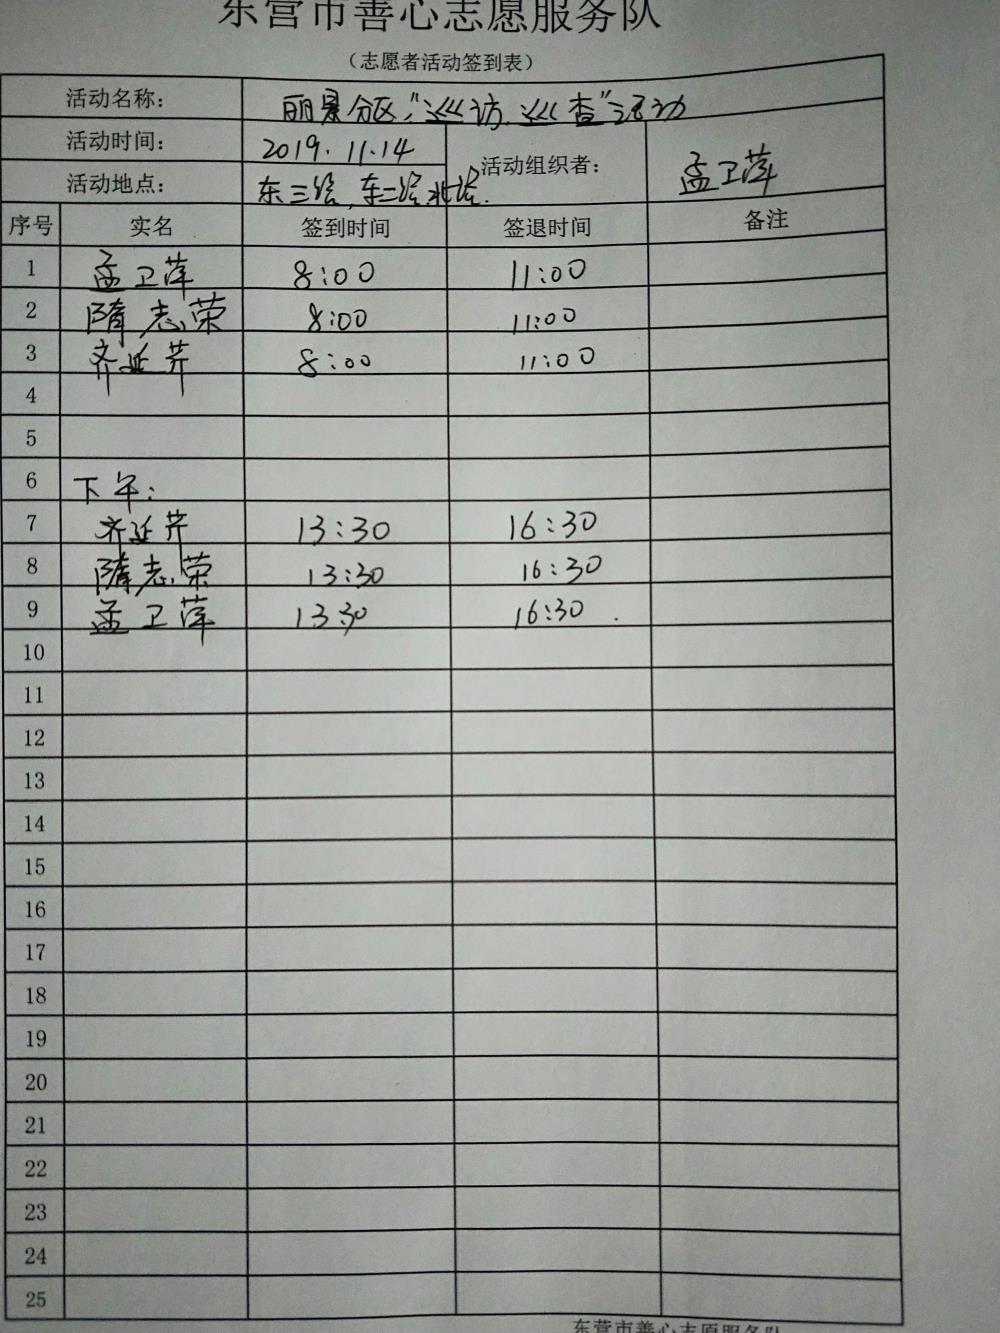 东营市善心志愿服务队
（志愿者活动签到表）
活动名称： 丽景分区“巡访、巡查”活动
活动时间： 2019.11.14 活动组织者： 孟卫萍
活动地点： 东三路，东二路，北路.
序号 实名 签到时间 签退时间 备注
1 孟卫萍 8:00 11:00
2 隋志荣 8:00 11:00
3 齐延芹 8:00 11:00
4
5
6 下午：
7 齐延芹 13:30 16:30
8 隋志荣 13:30 16:30
9 孟卫萍 13:30 16:30
10
11
12
13
14
15
16
17
18
19
20
21
22
23
24
25
东营市善心志愿服务队